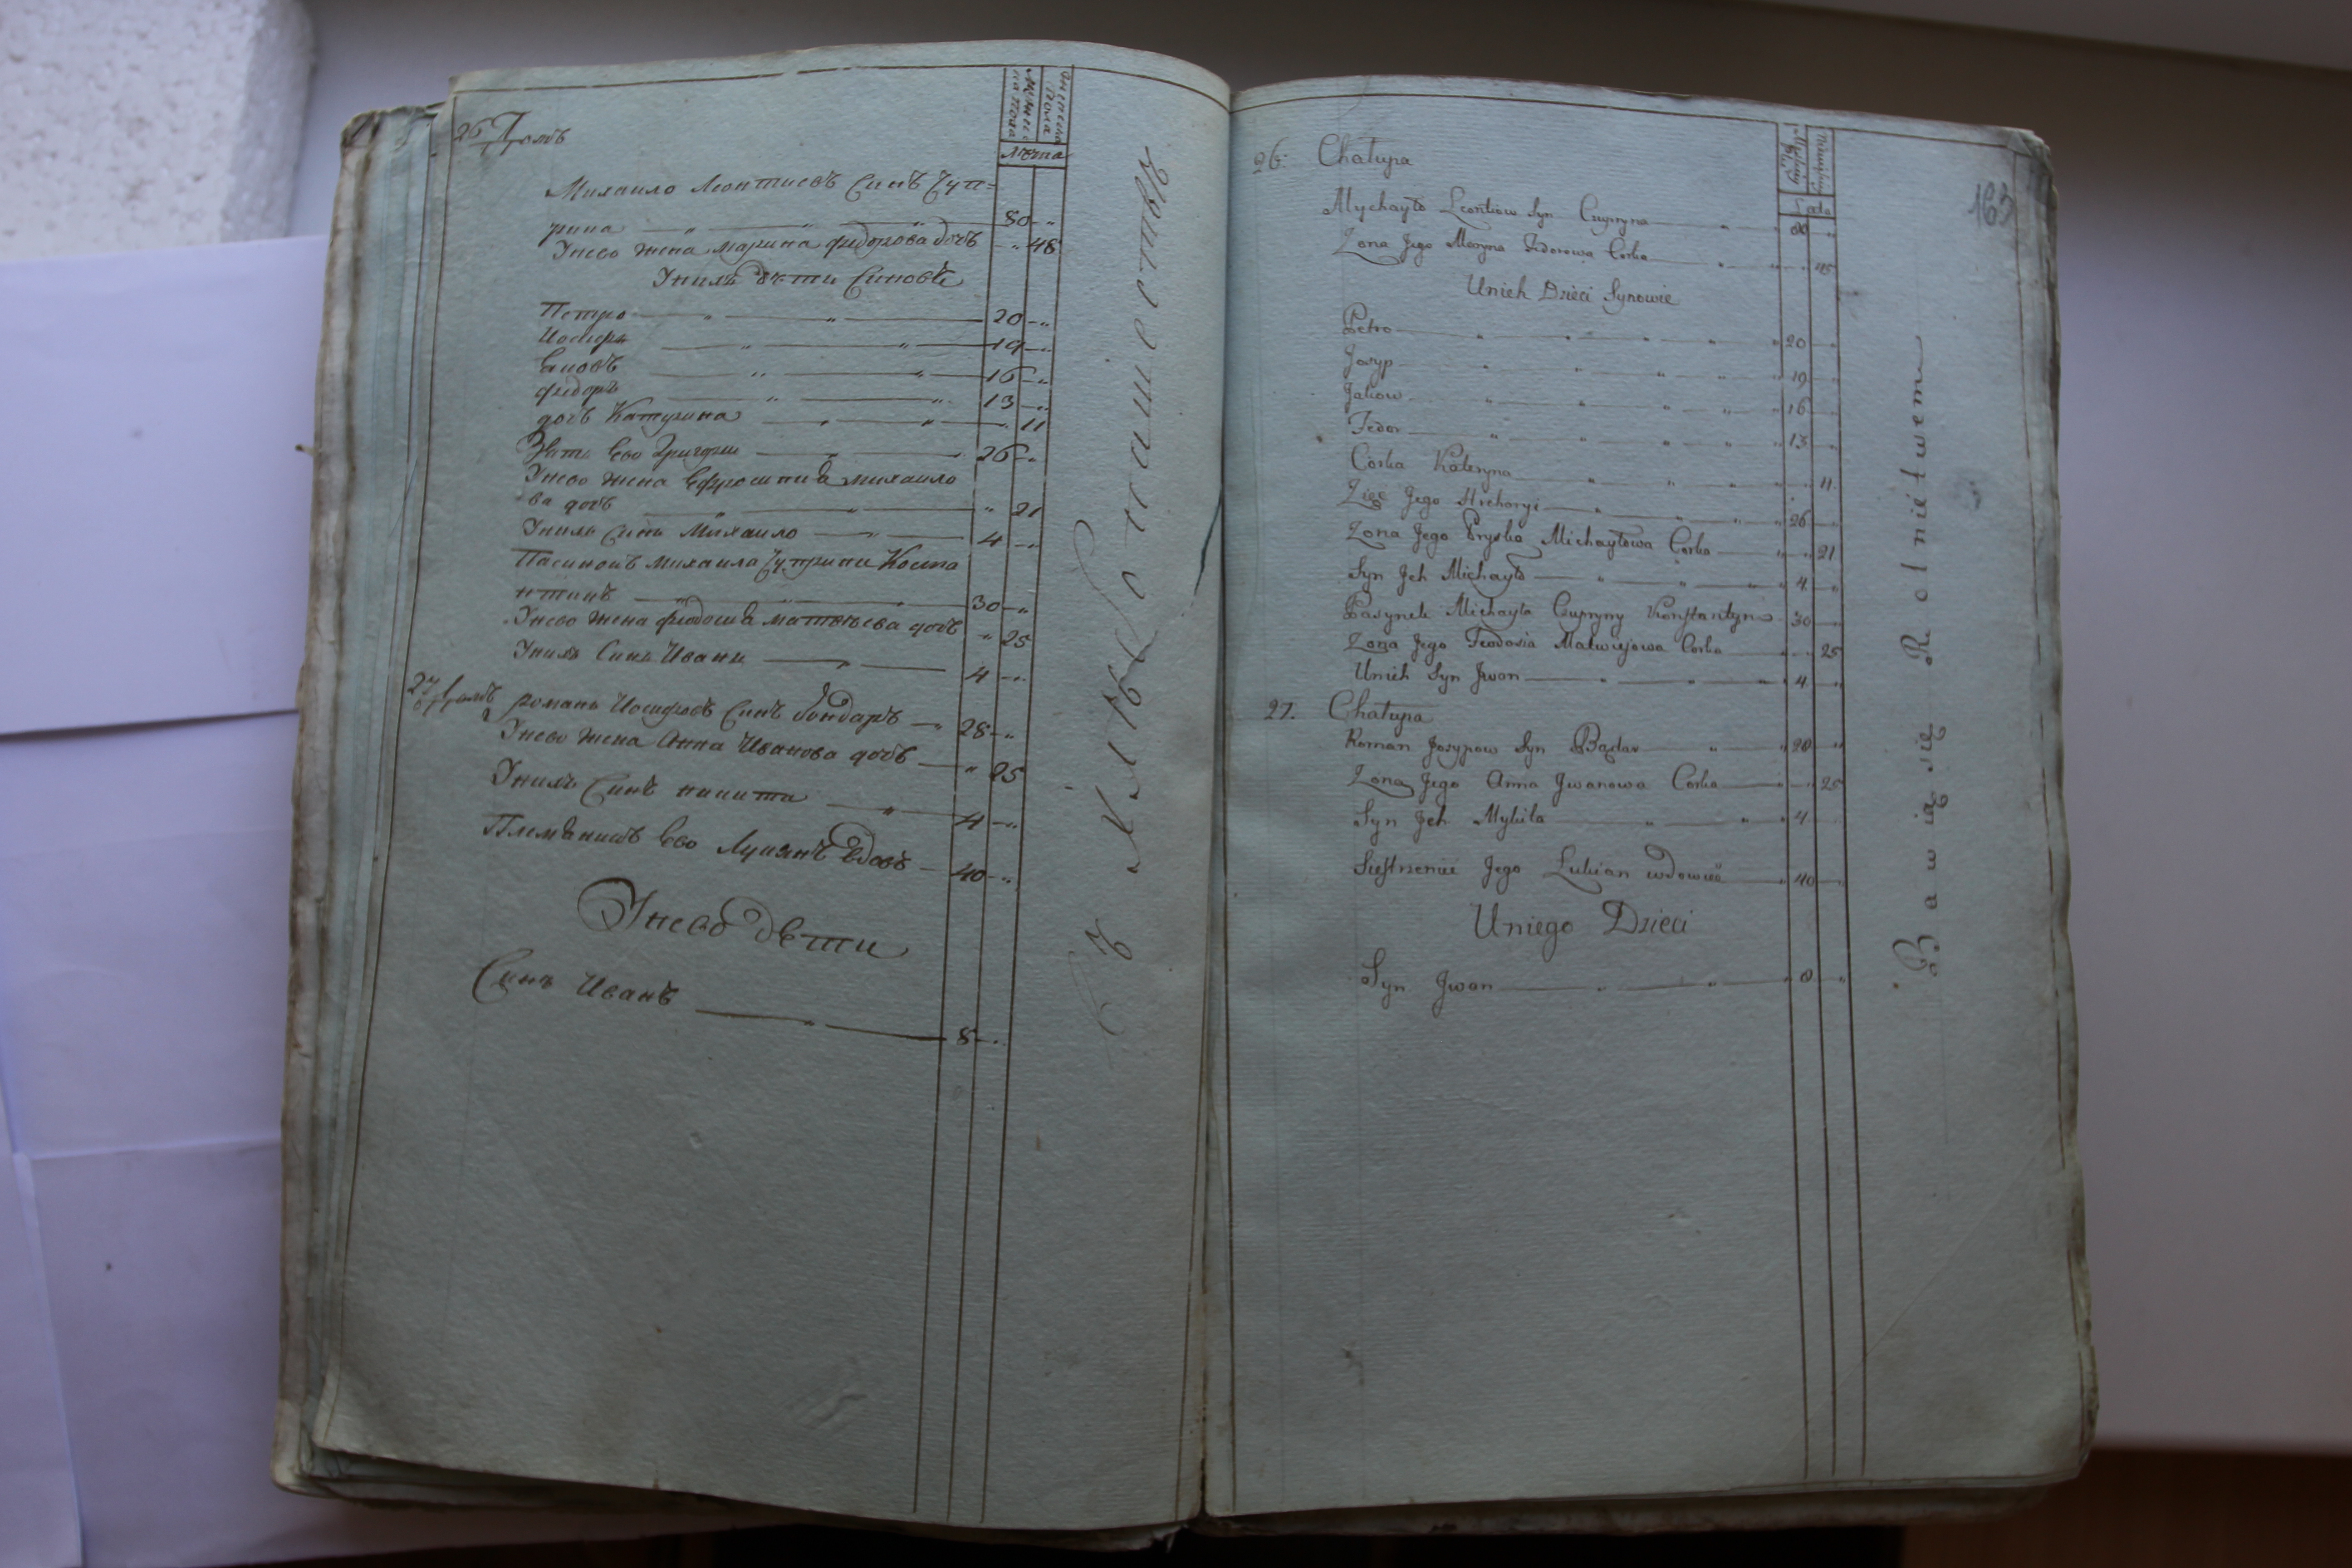 26 Домъ
Лѣта
Михаило Леонтиевъ Синъ Чуп=
рина — „ — „ — „ — 80 — „
Унево жена марина федорова дочъ — „ — 48
Унихъ дѣти Синовѣ
Петро — „ — „ — 20 — „
Иосифъ — „ — „ — 19 — „
Яковъ — „ — „ — 16 — „
федоръ — „ — „ — 13 — „
дочъ Катерина — „ — „ — „ 11
Зять Ево Григорий — 26 — „
Унево жена Ефросиния михаило
ва дочъ — „ — „ — „ 21
Унихъ Синъ Михаило — „ — 4 — „
Пасинокъ михаила Чуприни Конста
нтинъ — „ — „ — „ — 30 — „
Унево жена феодосия матвѣева дочъ „ 25
Унихъ Синъ Иванъ — „ — 4 — „
27 Домъ романъ Иосифовъ Синъ бондаръ — „ 28 — „
Унево жена Анна Иванова дочъ — „ 25
Унихъ Синъ никита — „ — 4 — „
Племянникъ Ево Лукянъ вдовъ — 40 — „
Унево дѣти
Синъ Иванъ — „ — 8 — „
хлѣбопашества
163
26. Chałupa
Lata
Mychayło Leontiow Syn Czupryna — „ — „ 80 „
Zona Jego Maryna Fedorowa Corka — „ — „ — „ 48
Unich Dzieci Synowie
Petro — „ — „ — „ — „ — „ 20 — „
Josyp — „ — „ — „ — „ — „ 19 — „
Jakow — „ — „ — „ — „ — „ 16 — „
Fedor — „ — „ — „ — „ — „ 13 — „
Corka Kateryna — „ — „ — „ — „ 11
Zięć Jego Hrehoryi — „ — „ — „ — „ 26 — „
Zona Jego Pryska Michayłowa Corka — „ — „ 21
Syn Jch Michayło — „ — „ — „ 4 — „
Pasynek Michayła Czupryny Konstantyn 30 — „
Zona Jego Teodosia Matwiejowa Corka — „ 25
Unich Syn Jwan — „ — „ — „ 4 — „
27. Chałupa
Roman Josypow Syn Bądar — „ — „ 28 „
Zona Jego Anna Jwanowa Corka — „ — „ 25
Syn Jch Mykita — „ — „ — „ 4 — „
Siestrzeniec Jego Lukian wdowiec — „ 40 — „
Uniego Dzieci
Syn Jwan — „ — „ — „ 8 — „
Bawią się Rolnictwem